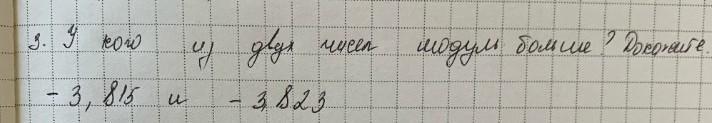 3. У кого из двух чисел модуль больше? Докажите.
- 3, 815 и - 3,823